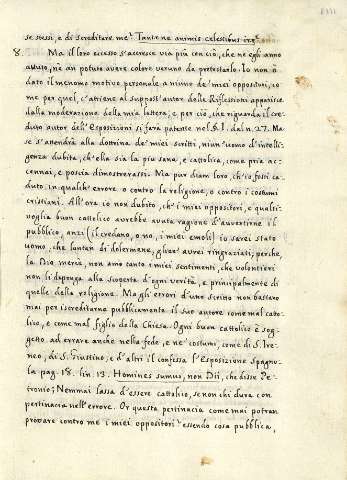 se stessi, e di screditare me? Tantæne animis celestibus iræ?
8. Ma il loro eccesso s'accresce via più con ciò, che ne egli anno
avuto, nè an potuto avere colore veruno da pretestarlo. Io non ò
dato il menomo motivo personale a niuno de' miei oppositori, co
me per quel, c'attiene al suppost' autor delle Riflessioni apparisce
dalla moderazione della mia lettera; e per ciò, che riguarda il cre
duto autor dell'Esposizioni si farà patente nel § I. dal n. 27. Ma
se s'attenderà alla dottrina de' miei scritti, niun'uomo d'intelli
genza dubita, ch'ella sia la più sana, e cattolica, come pria ac=
cennai, e poscia dimostrerassi. Ma pur diam loro, ch'io fossi ca
duto in qualch'errore o contro la religione, o contro i costumi
cristiani. All'ora io non dubito, ch'i miei oppositori, e qualsi
voglia buon cattolico avrebbe avuta ragione d'avvertirne il
pubblico, anzi (il credano, o no, i miei emoli) io sarei stato
uomo, che lontan di dolermene, gliene avrei ringraziati; perche,
la Dio mercè, non amo tanto i miei sentimenti, che volontieri
non li disprezza alla scoperta d'ogni verità, e principalmente di
quelle della religione. Ma gli errori d'uno scritto non bastero
mai per iscreditarne pubblicamente il suo autore come mal cato
lico, e come mal figlio della Chiesa. Ogni buon cattolico è sog=
getto ad errare anche nella fede, e ne' costumi, come di S. Ire=
neo, di S. Giustino, e d'altri il confessa l'Esposizione Spagnu
la pag. 18. lin. 13. Homines sumus, non Dii, che disse Pe=
tronio; Nemmai lassa d'essere cattolico, se non chi dura con
pertinacia nell'errore. Or questa pertinacia come mai potran
provare contro me i miei oppositori? essendo cosa pubblica,